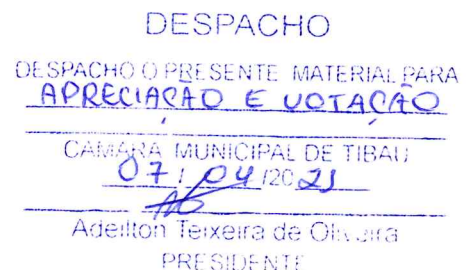 DESPACHO
DESPACHO O PRESENTE MATERIAL PARA
APRECIAÇÃO E VOTAÇÃO
CÂMARA MUNICIPAL DE TIBAU
07 / 04 /20 21
Adeilton Teixeira de Oliveira
PRESIDENTE